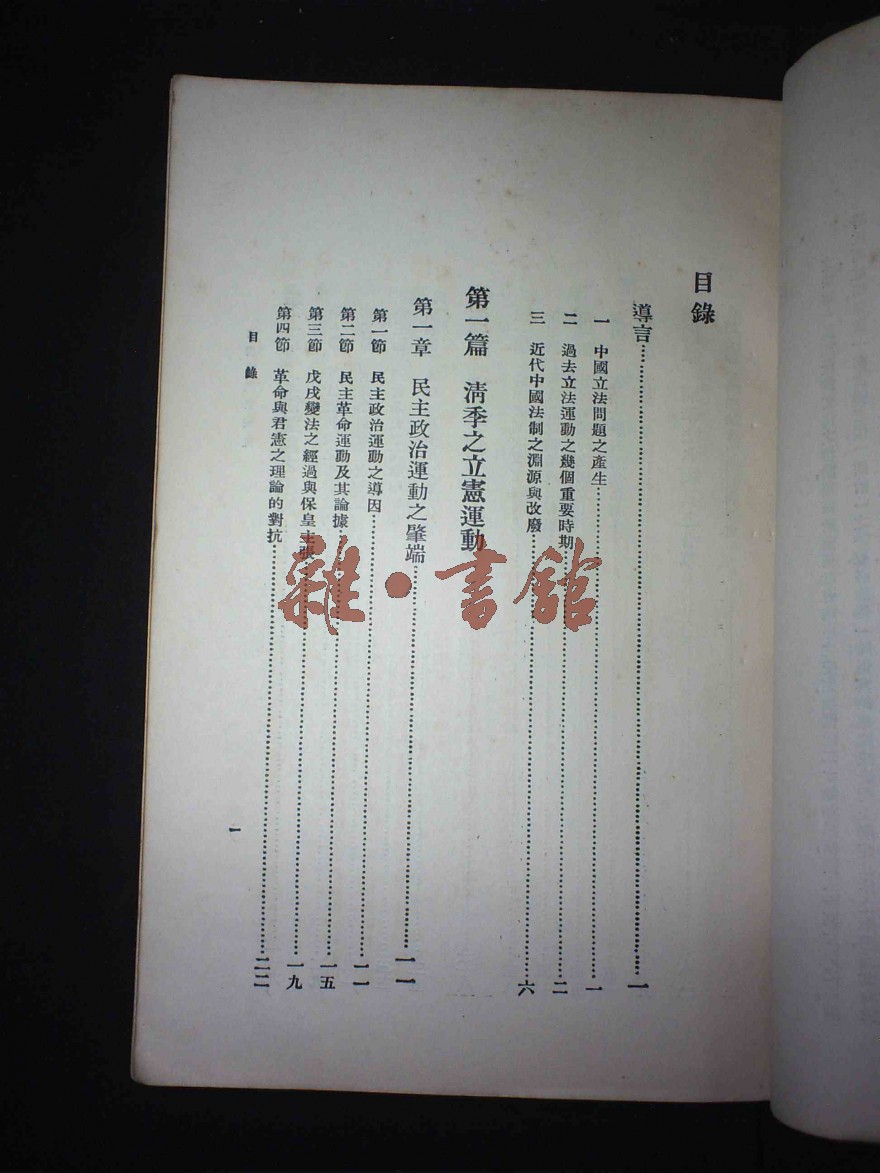 目錄
導言……一
一 中國立法問題之產生……一
二 過去立法運動之幾個重要時期……二
三 近代中國法制之淵源與改廢……六
第一篇 清季之立憲運動
第一章 民主政治運動之肇端……一一
第一節 民主政治運動之導因……一一
第二節 民主革命運動及其論據……一五
第三節 戊戌變法之經過與保皇主張……一九
第四節 革命與君憲之理論的對抗……二二
目錄
一
雜·書館